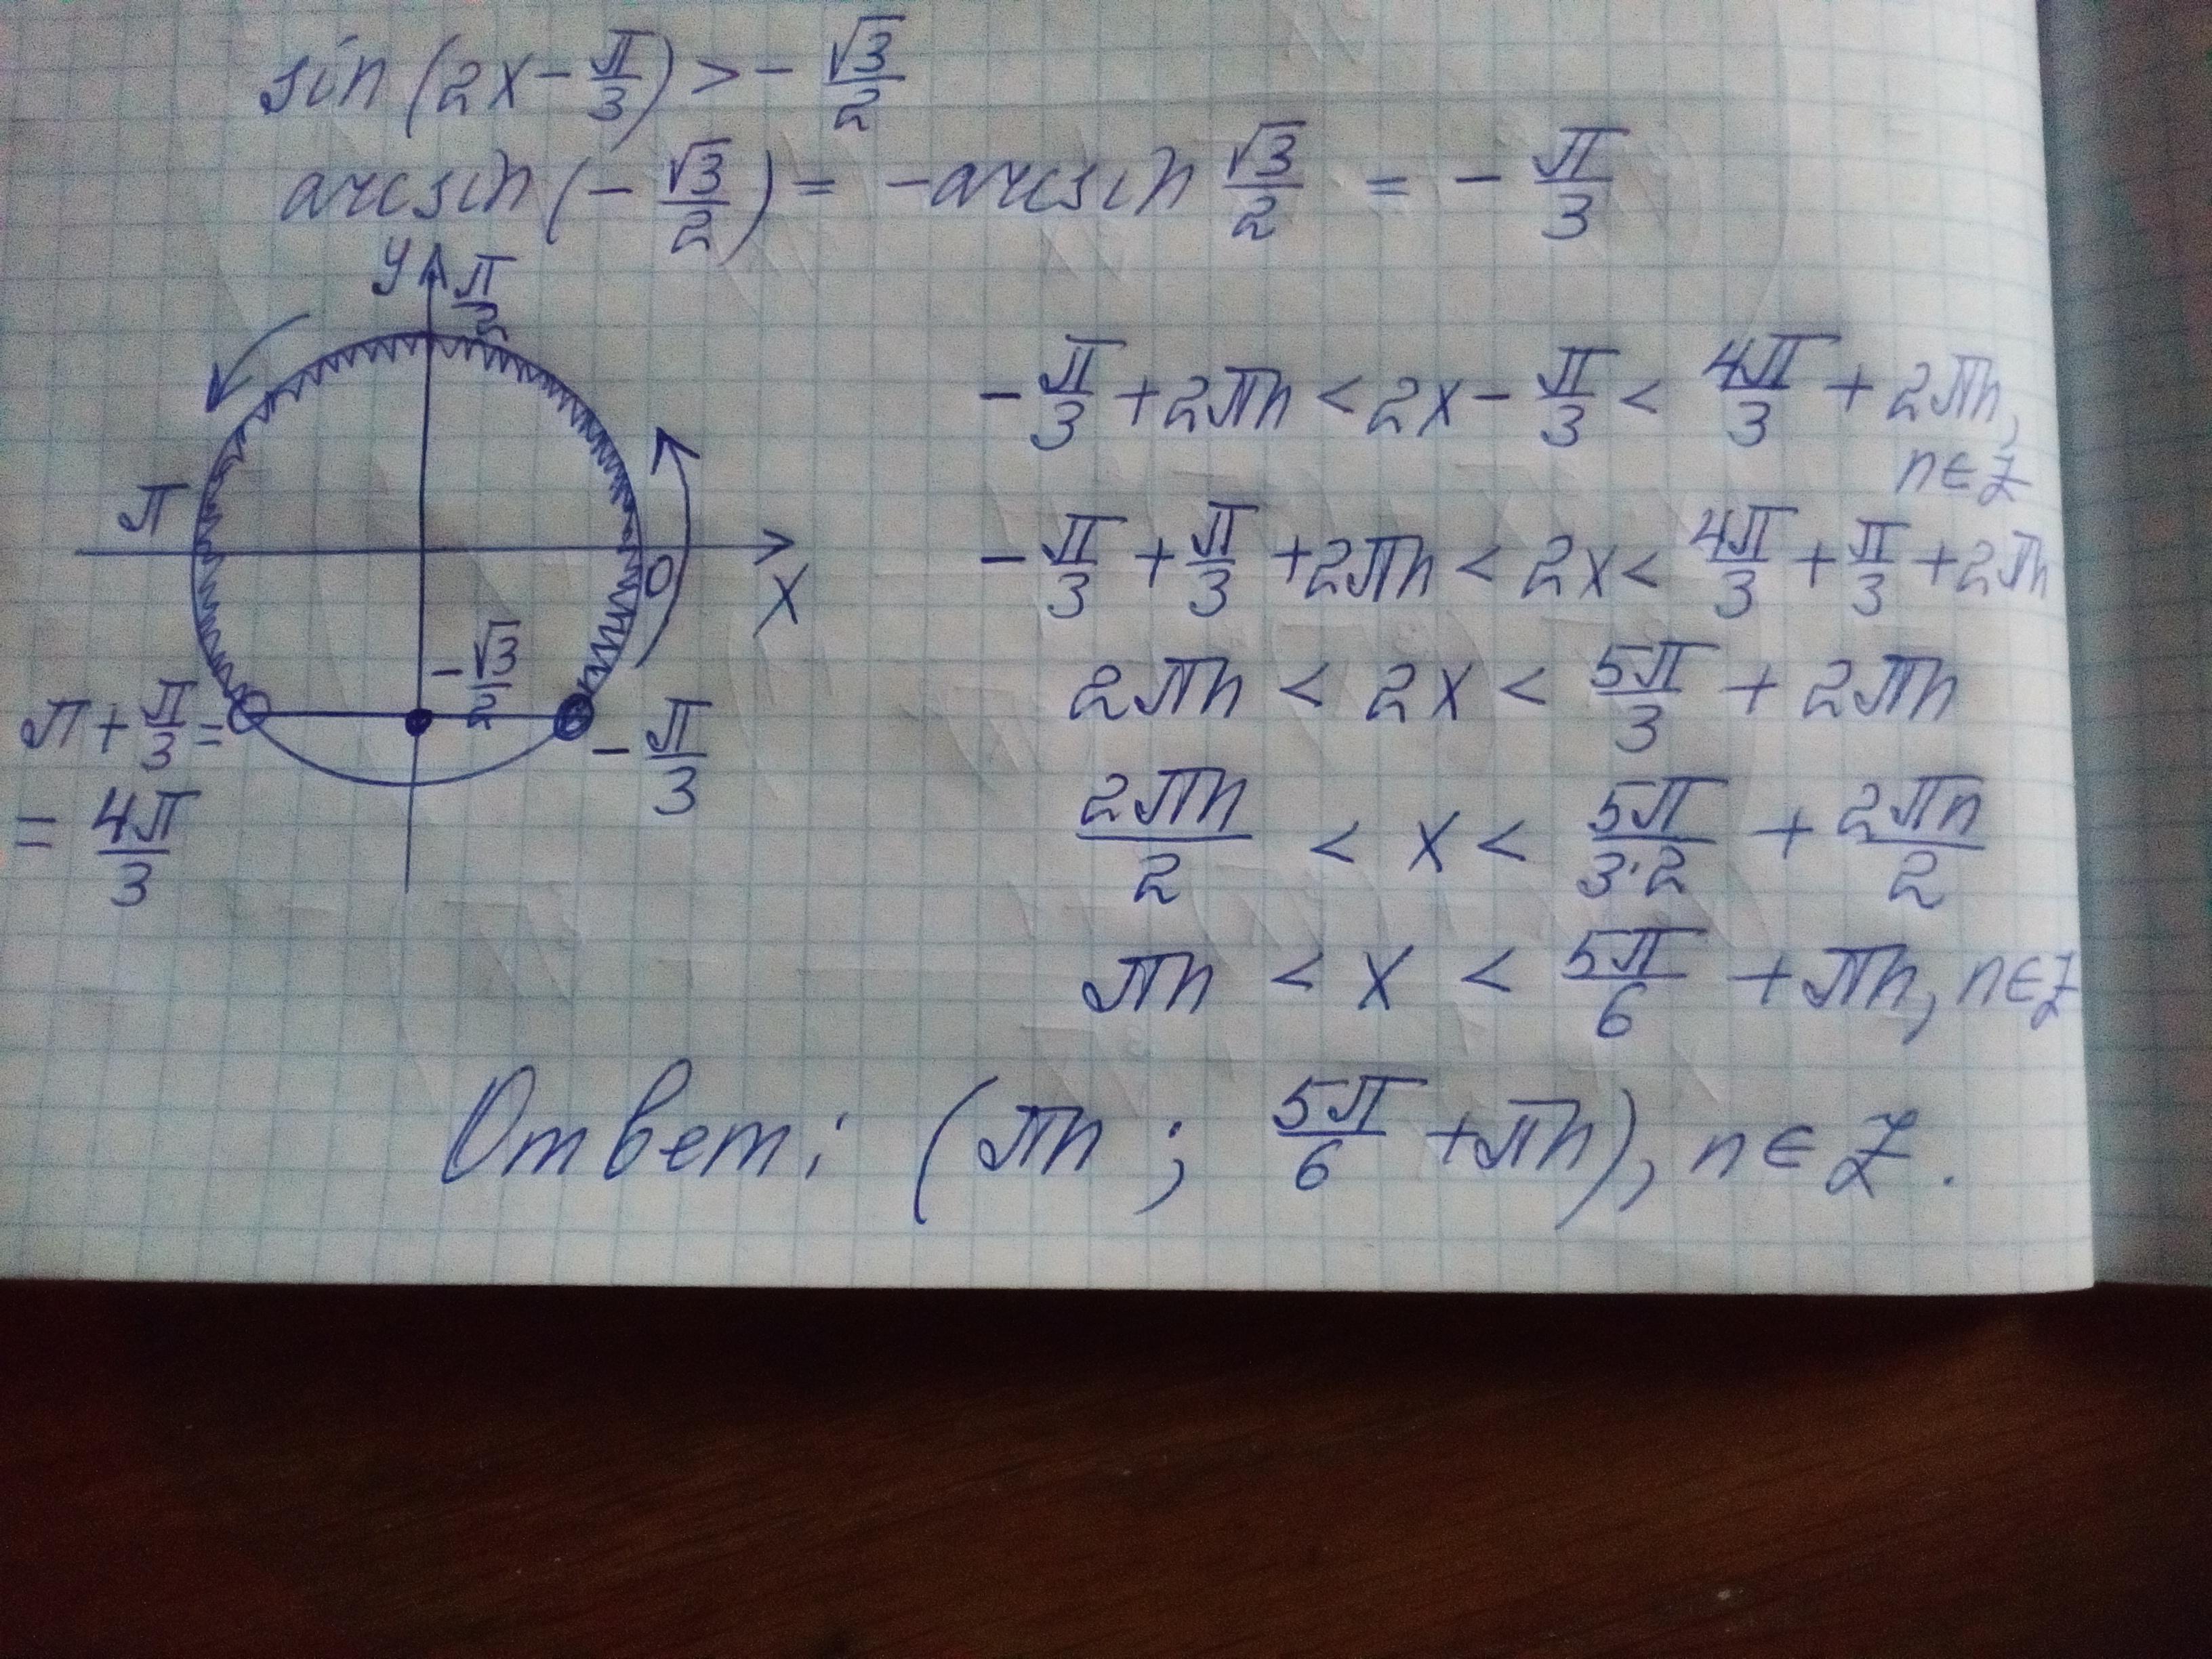 sin(2x - π/3) > - √3/2
arcsin(- √3/2) = - arcsin √3/2 = - π/3
y
π/2
π
0
x
- √3/2
π + π/3 =
= 4π/3
- π/3
- π/3 + 2πn < 2x - π/3 < 4π/3 + 2πn,
n ∈ Z
- π/3 + π/3 + 2πn < 2x < 4π/3 + π/3 + 2πn
2πn < 2x < 5π/3 + 2πn
2πn/2 < x < 5π/3·2 + 2πn/2
πn < x < 5π/6 + πn, n ∈ Z
Ответ: (πn ; 5π/6 + πn), n ∈ Z.